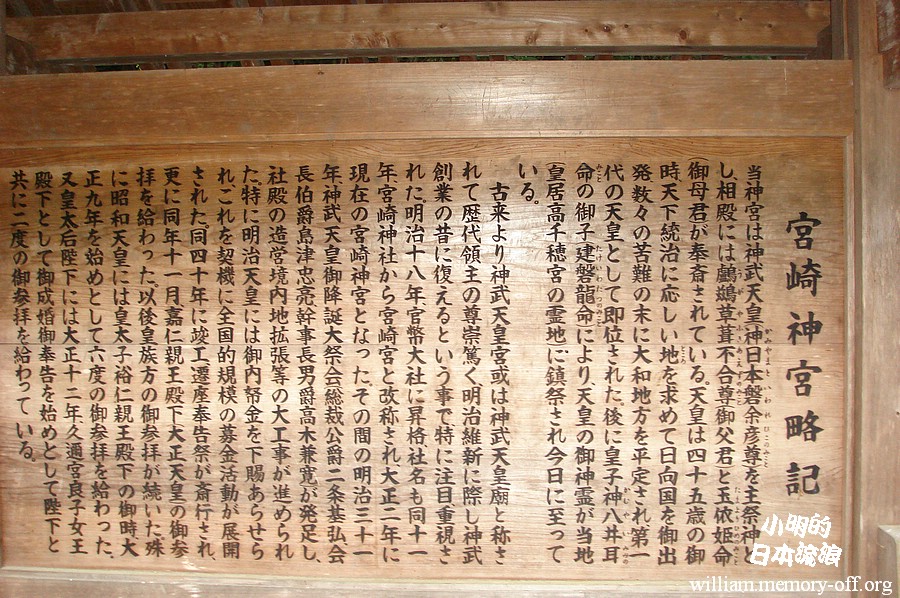 宮崎神宮略記
当神宮は神武天皇(神日本磐余彦尊)を主祭神と
かむやまといわれひこのみこと
し、相殿には鸕鷀草葺不合尊(御父君)と玉依姫命
(御母君)が奉斎されている。天皇は四十五歳の御
時天下統治に応しい地を求めて日向国を御出
発、数々の苦難の末に大和地方を平定され、第一
代の天皇として即位された後に皇子神八井耳
命の御子建磐龍命により、天皇の御神霊が当地
たけいわたつのみこと
(皇居高千穂宮の霊地)に鎮祭され今日に至って
いる。
古来より神武天皇宮或は神武天皇廟と称さ
れて歴代領主の尊崇篤く、明治維新に際し神武
創業の昔に復えるという事で特に注目重視さ
れた。明治十八年、官幣大社に昇格、社名も同十一
年、宮崎神社から宮崎宮と改称され大正二年に
現在の宮崎神宮となった。その間の明治三十一
年神武天皇御降誕大祭会(総裁公爵二条基弘会
長伯爵島津忠亮幹事長男爵高木兼寛)が発足し、
社殿の造営境内地拡張等の大工事が進められ
た。特に明治天皇には御内帑金を下賜あらせら
れ、これを契機に全国的規模の募金活動が展開
された。同四十年に竣工、遷座奉告祭が斎行され、
更に同年十一月、嘉仁親王殿下(大正天皇)の御参
拝を給わった。以後皇族方の御参拝が続いた。殊
に昭和天皇には皇太子裕仁親王殿下の御時大
正九年を始めとして六度の御参拝を給わった。
又皇太后陛下には大正十二年久邇宮良子女王
殿下として御成婚御奉告を始めとして陛下と
共に二度の御参拝を給わっている。
小明的
日本流浪
william.memory-off.org